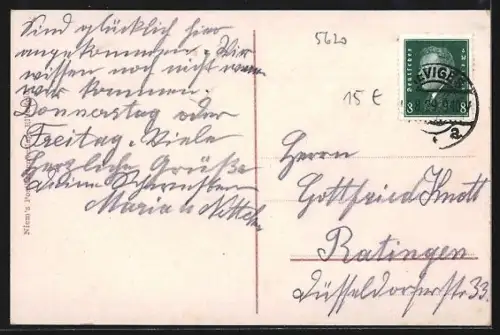 Sind glücklich hier
angekommen. Wir
wissen noch nicht wann
wir kommen.
Donnerstag oder
Freitag. Viele
herzliche Grüße
Deine Schwestern
Maria u.
5620
15 €
Deutsches Reich
8 8
Herrn
Gottfried Knott
Ratingen
Düsseldorferstr 33.